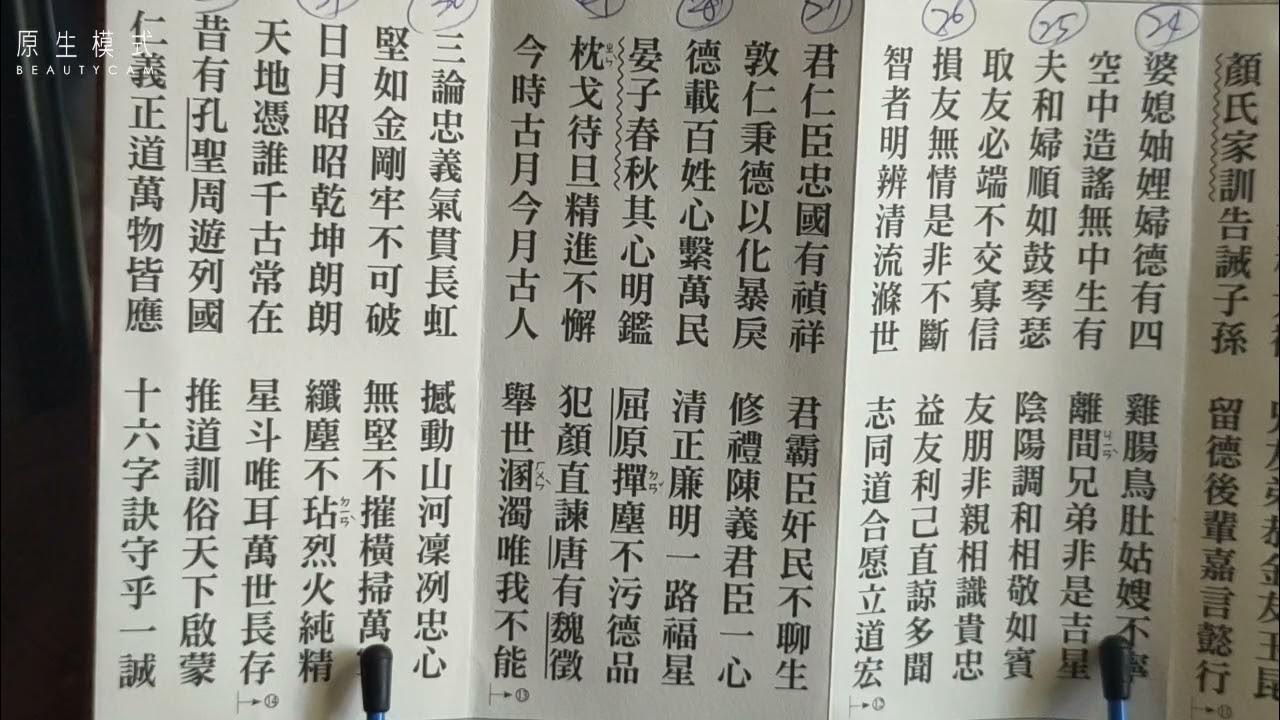 原生模式
BEAUTYCAM
顏氏家訓告誡子孫 留德後輩嘉言懿行
⑪
24
婆媳妯娌婦德有四 雞腸鳥肚姑嫂不
空中造謠無中生有 離間兄弟非是吉星
25
夫和婦順如鼓琴瑟 陰陽調和相敬如賓
取友必端不交寡信 友朋非親相識貴忠
26
損友無情是非不斷 益友利己直諒多聞
智者明辨清流滌世 志同道合愿立道宏
⑫
27
君仁臣忠國有禎祥 君霸臣奸民不聊生
敦仁秉德以化暴戾 修禮陳義君臣一心
28
德載百姓心繫萬民 清正廉明一路福星
晏子春秋其心明鑑 屈原撣塵不污德品
29
枕戈待旦精進不懈 犯顏直諫唐有魏徵
今時古月今月古人 舉世溷濁唯我不能
⑬
30
三論忠義氣貫長虹 撼動山河凜冽忠心
堅如金剛牢不可破 無堅不摧橫掃萬
日月昭昭乾坤朗朗 纖塵不玷烈火純精
天地憑誰千古常在 星斗唯耳萬世長存
⑭
昔有孔聖周遊列國 推道訓俗天下啟蒙
仁義正道萬物皆應 十六字訣守乎一誠